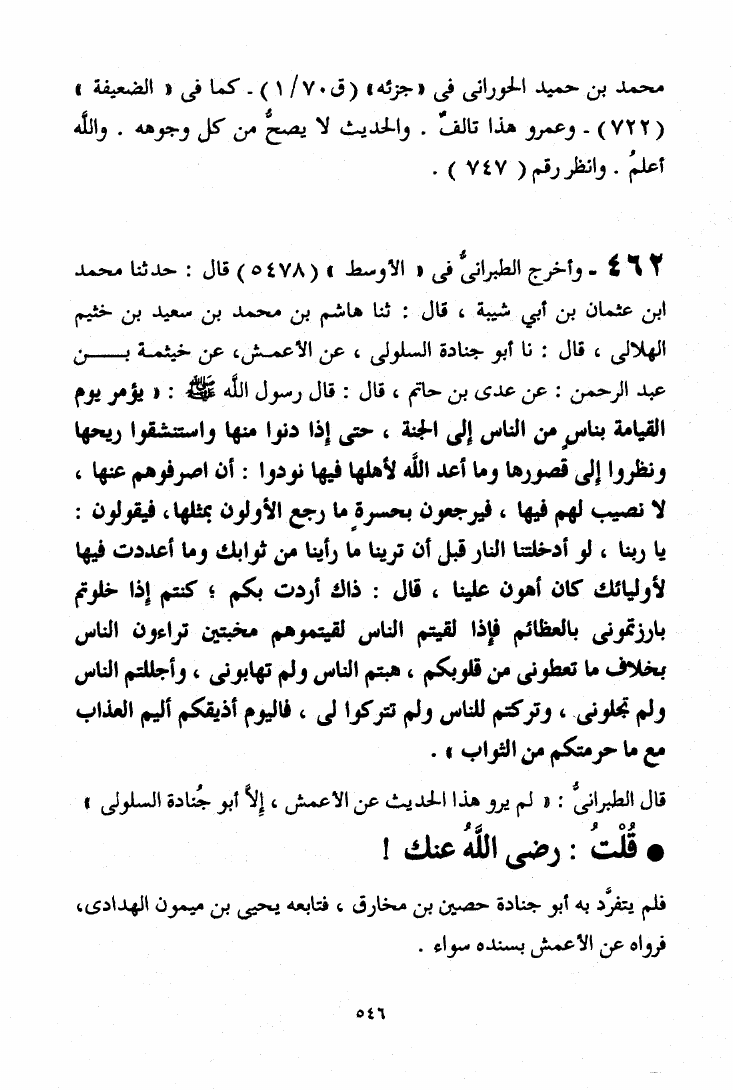 محمد بن حميد الحورانى فى « جزئه » ( ق ٧٠ / ١ ) ـ كما فى « الضعيفة »
( ٧٢٢ ) ـ وعمرو هذا تالفٌ . والحديث لا يصحُّ من كل وجوهه . واللَّه
أعلمُ . وانظر رقم ( ٧٤٧ ) .
٤٦٢ ـ وأخرج الطبرانىُّ فى « الأوسط » ( ٥٤٧٨ ) قال : حدثنا محمد
ابن عثمان بن أبي شيبة ، قال : ثنا هاشم بن محمد بن سعيد بن خثيم
الهلالى ، قال : نا أبو جنادة السلولى ، عن الأعمش ، عن خيثمة بـــن
عبد الرحمن : عن عدى بن حاتم ، قال : قال رسول اللَّه ﷺ : « يؤمر يوم
القيامة بناسٍ من الناس إلى الجنة ، حتى إذا دنوا منها واستنشقوا ريحها
ونظروا إلى قصورها وما أعد اللَّه لأهلها فيها نودوا : أن اصرفوهم عنها ،
لا نصيب لهم فيها ، فيرجعون بحسرةٍ ما رجع الأولون بمثلها ، فيقولون :
يا ربنا ، لو أدخلتنا النار قبل أن ترينا ما رأينا من ثوابك وما أعددت فيها
لأوليائك كان أهون علينا ، قال : ذاك أردت بكم ؛ كنتم إذا خلوتم
بارزتمونى بالعظائم فإذا لقيتم الناس لقيتموهم مخبتين تراءون الناس
بخلاف ما تعطونى من قلوبكم ، هبتم الناس ولم تهابونى ، وأجللتم الناس
ولم تجلونى ، وتركتم للناس ولم تتركوا لى ، فاليوم أذيقكم أليم العذاب
مع ما حرمتكم من الثواب » .
قال الطبرانىُّ : « لم يرو هذا الحديث عن الأعمش ، إلاَّ أبو جُنادة السلولى »
● قُلْتُ : رضى اللَّهُ عنك !
فلم يتفرَّد به أبو جنادة حصين بن مخارق ، فتابعه يحيى بن ميمون الهدادى ،
فرواه عن الأعمش بسنده سواء .
٥٤٦